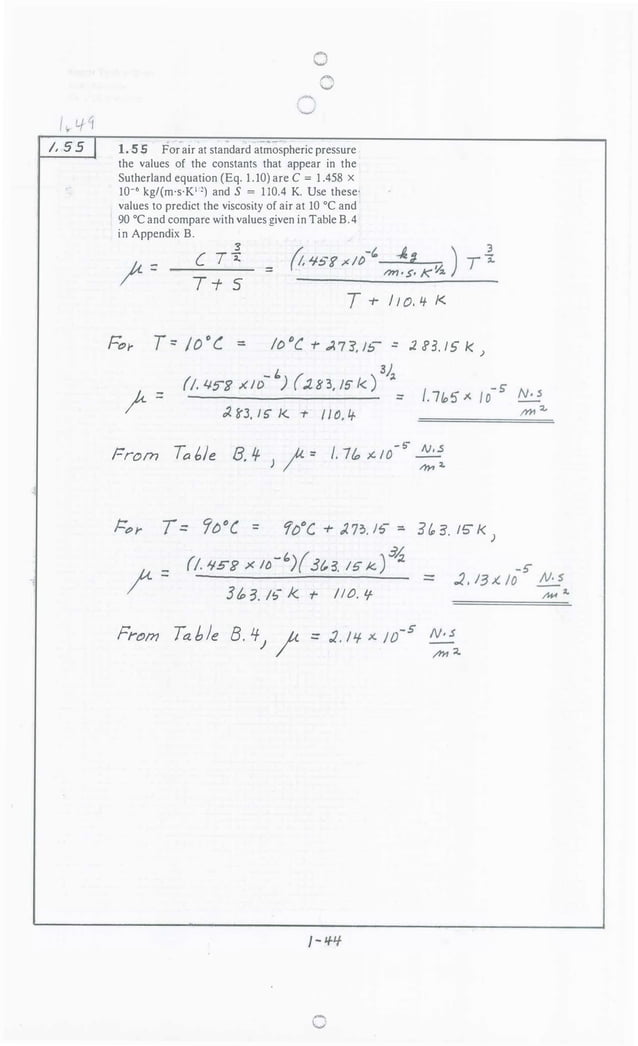 1.49
1.55
1.55 For air at standard atmospheric pressure
the values of the constants that appear in the
Sutherland equation (Eq. 1.10) are C = 1.458 ×
10⁻⁶ kg/(m·s·K¹ᐟ²) and S = 110.4 K. Use these
values to predict the viscosity of air at 10 °C and
90 °C and compare with values given in Table B.4
in Appendix B.
μ = C T^(3/2) / (T + S) = (1.458 × 10⁻⁶ kg/(m·s·K^½)) T^(3/2) / (T + 110.4 K)
For T = 10°C = 10°C + 273.15 = 283.15 K,
μ = (1.458 × 10⁻⁶)(283.15 K)^(3/2) / (283.15 K + 110.4) = 1.765 × 10⁻⁵ N·s/m²
From Table B.4, μ = 1.76 × 10⁻⁵ N·s/m²
For T = 90°C = 90°C + 273.15 = 363.15 K,
μ = (1.458 × 10⁻⁶)(363.15 K)^(3/2) / (363.15 K + 110.4) = 2.13 × 10⁻⁵ N·s/m²
From Table B.4, μ = 2.14 × 10⁻⁵ N·s/m²
1-44